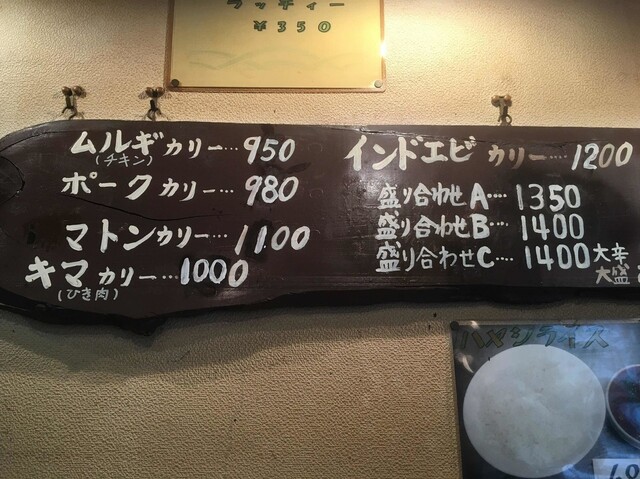 ラッディー
¥350
ムルギカリー…950
(チキン)
ポークカリー…980
マトンカリー…1100
キマカリー…1000
(ひき肉)
インドエビカリー…1200
盛り合わせA…1350
盛り合わせB…1400
盛り合わせC…1400
大辛
大盛
ハヤシライス